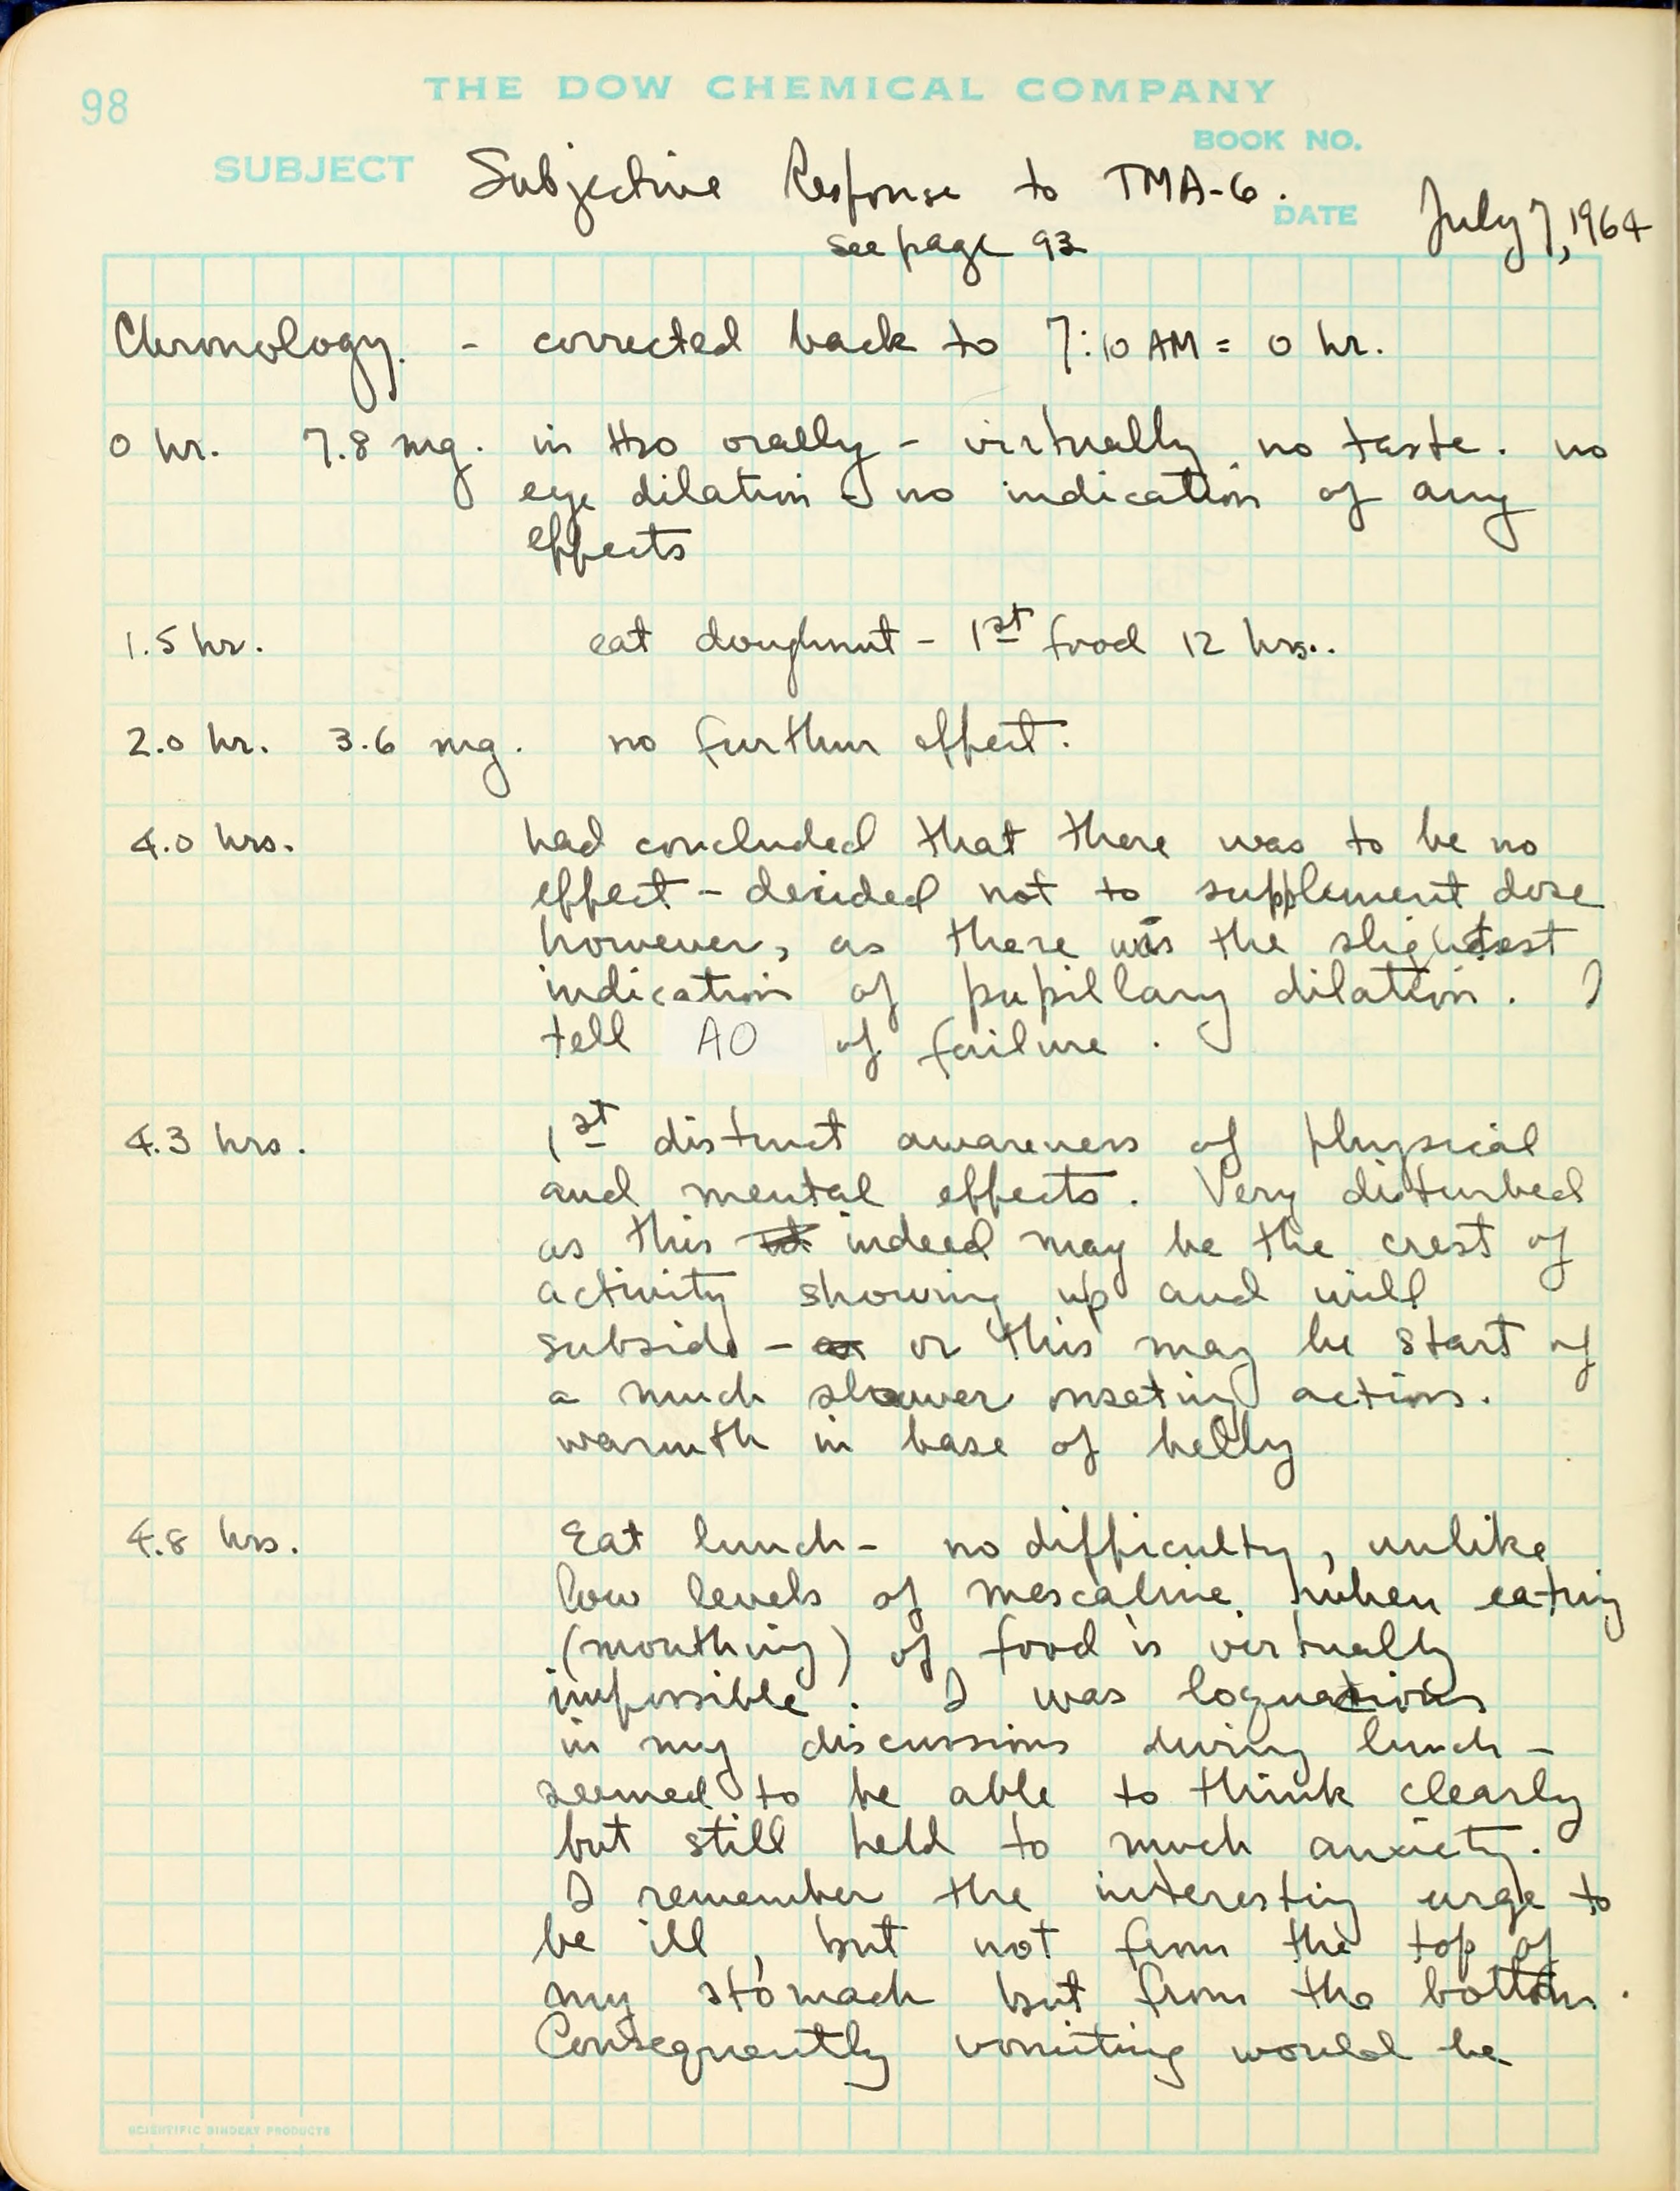 98
THE DOW CHEMICAL COMPANY
BOOK NO.
SUBJECT Subjective Response to TMA-6.
DATE July 7, 1964
see page 93
Chronology. - corrected back to 7:10 AM = 0 hr.
0 hr. 7.8 mg. in H2O orally - virtually no taste. no
eye dilation - no indication of any
effects
1.5 hr. eat doughnut - 1st food 12 hrs..
2.0 hr. 3.6 mg. no further effect.
4.0 hrs. had concluded that there was to be no
effect - decided not to supplement dose
however, as there was the slightest
indication of pupillary dilation. I
tell AO of failure.
4.3 hrs. 1st distinct awareness of physical
and mental effects. Very disturbed
as this indeed may be the crest of
activity showing up and will
subside - or this may be start of
a much slower onseting action.
warmth in base of belly
4.8 hrs. Eat lunch - no difficulty, unlike
low levels of mescaline when eating
(mouthing) of food is virtually
impossible. I was loquacious
in my discussions during lunch -
seemed to be able to think clearly
but still held to much anxiety.
I remember the interesting urge to
be ill, but not from the top of
my stomach but from the bottom.
Consequently vomiting would be
SCIENTIFIC BINDERY PRODUCTS